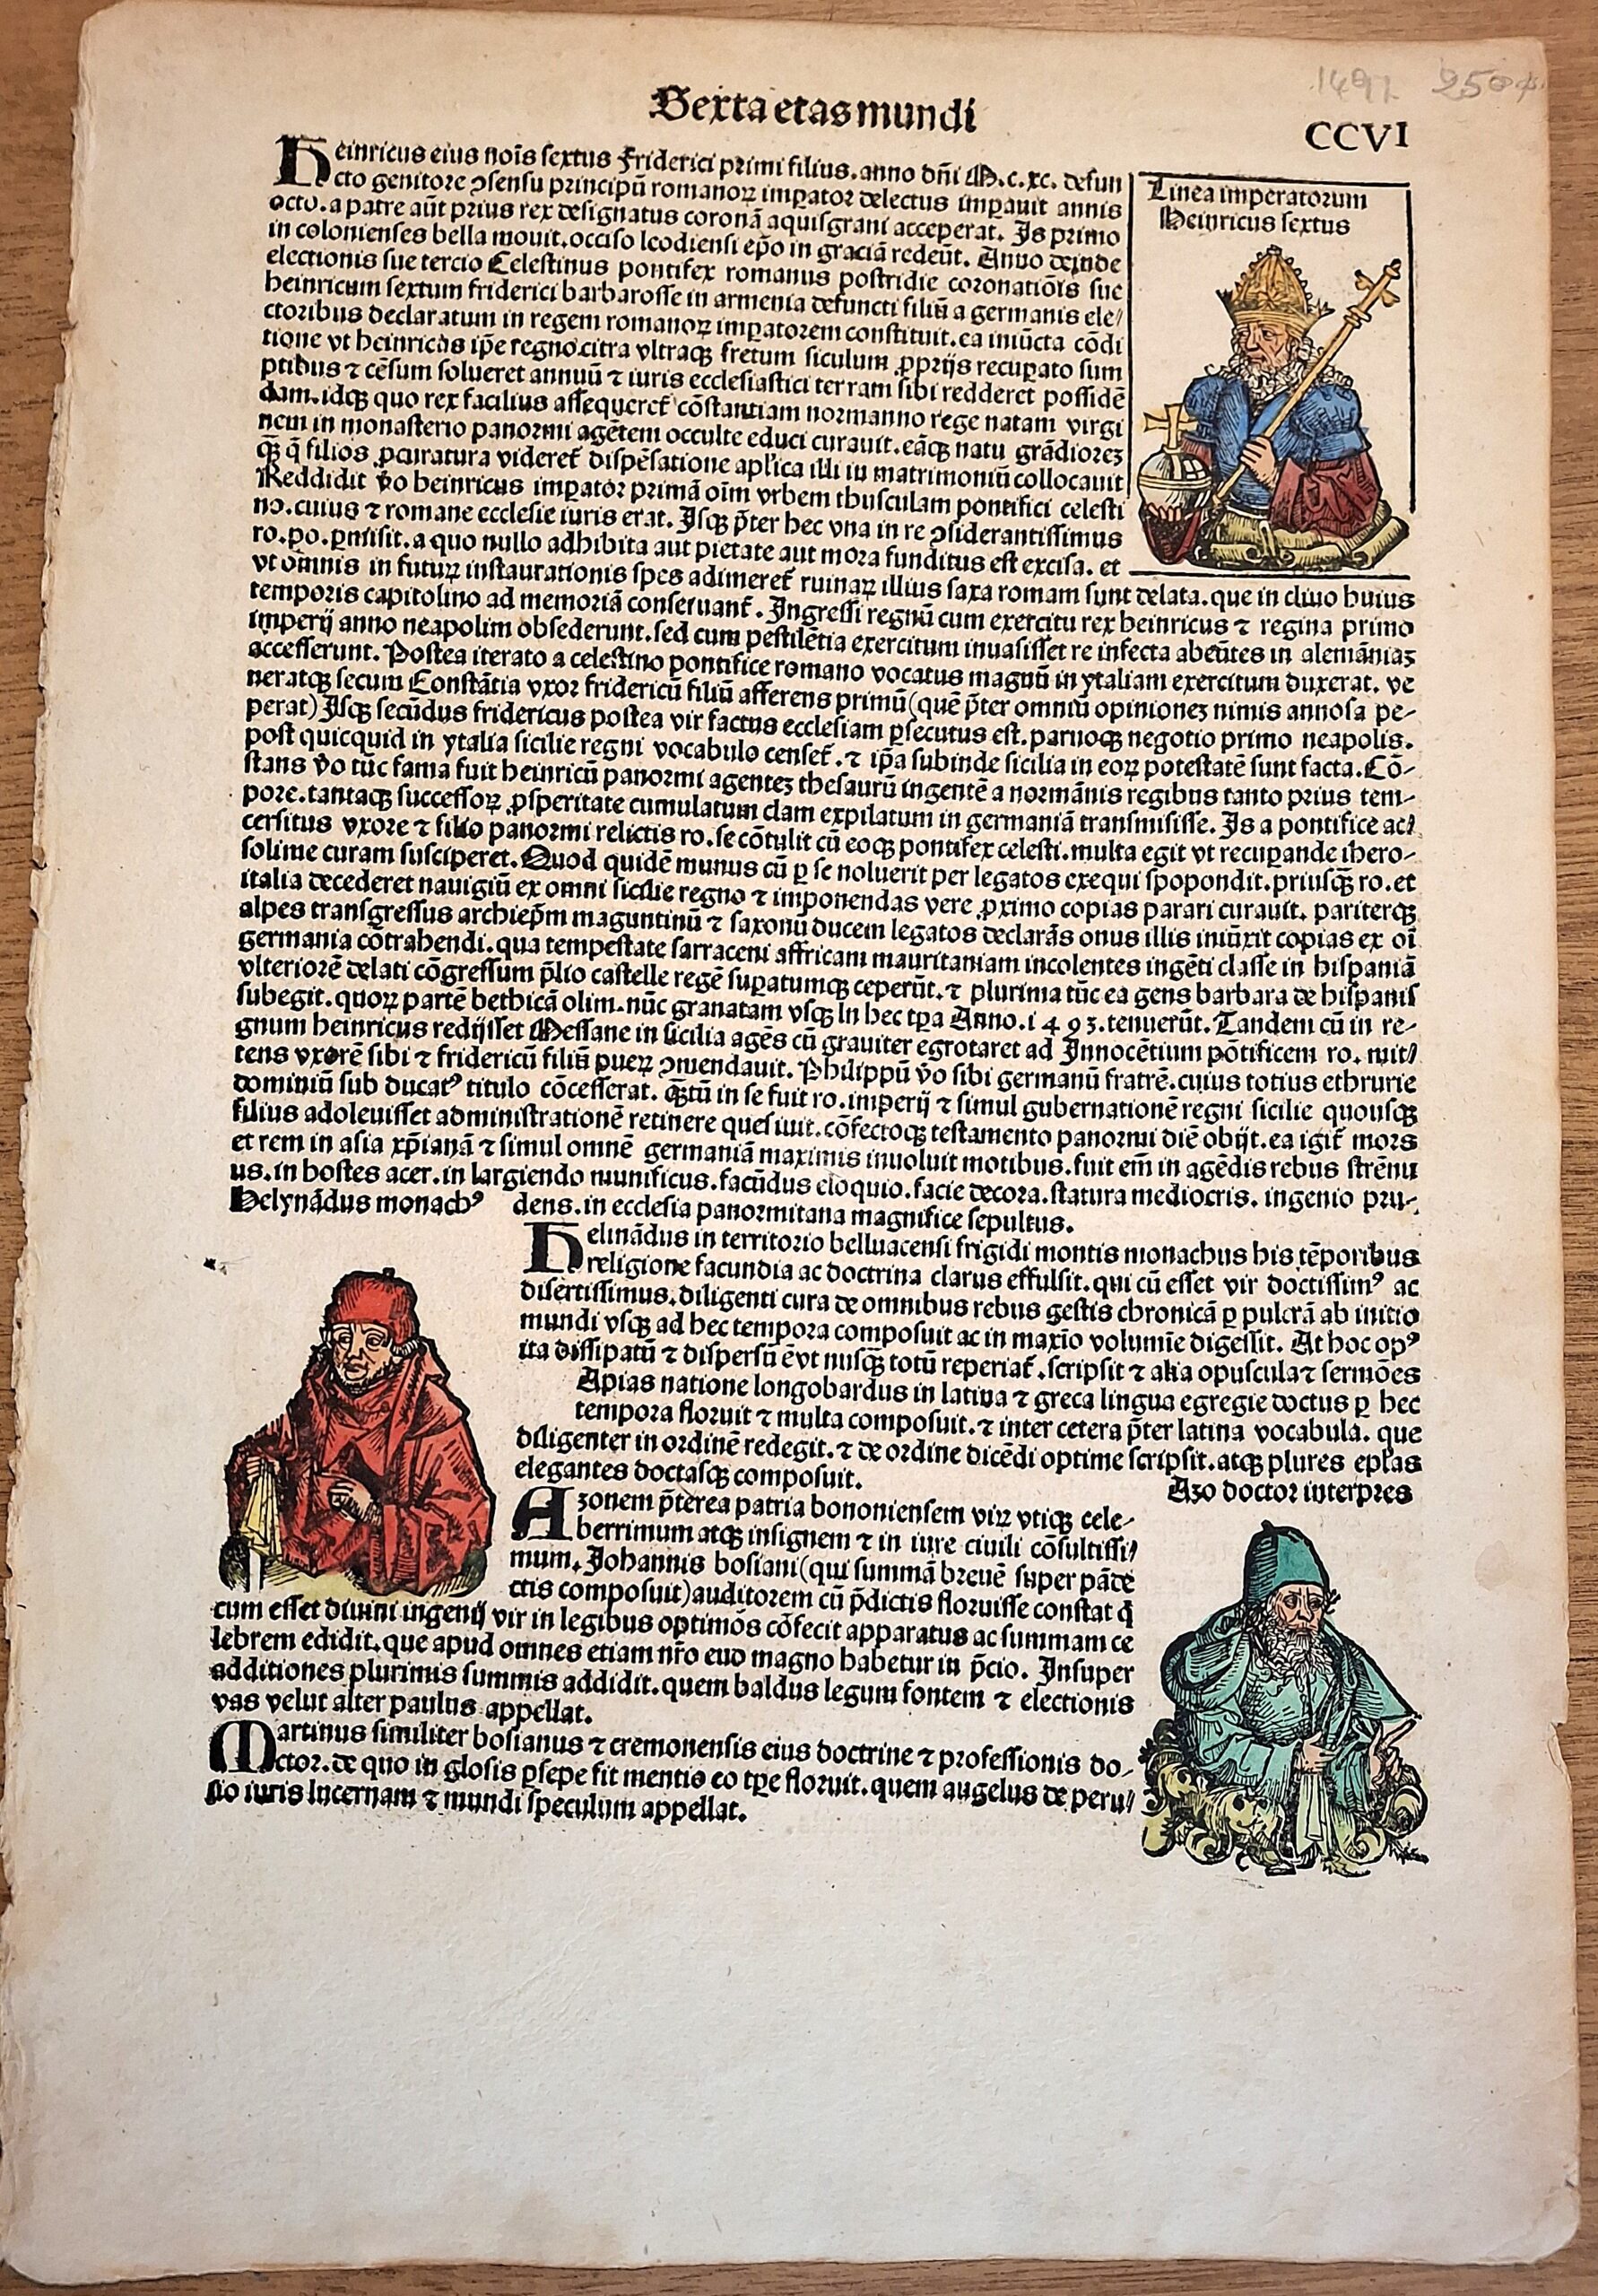 1497 250
Sexta etas mundi
CCVI
Heinricus eius noīs sextus Friderici primi filius. anno dn̄i M.c.xc. defun
cto genitore ꝯsensu principū romanoꝝ imꝑator delectus imꝑauit annis
octo. a patre aūt prius rex designatus coronā aquisgrani acceperat. Is primo
in colonienses bella mouit. occiso leodiensi ep̄o in graciā redeūt. Anno deinde
electionis sue tercio Celestinus pontifex romanus postridie coronatiōis sue
heinricum sextum friderici barbarosse in armenia defuncti filiū a germanis ele/
ctoribus declaratum in regem romanoꝝ imꝑatorem constituit. ea iniūcta cōdi
tione vt heinricus ip̄e regno citra vltraqꝫ fretum siculum ꝓprijs recuꝑato sum
ptibus ⁊ cēsum solueret annuū ⁊ iuris ecclesiastici terram sibi redderet possidē
dam. idqꝫ quo rex facilius assequeret᷑ cōstantiam normanno rege natam virgi
nem in monasterio panormi agētem occulte educi curauit. eāqꝫ natu grādiorēꝫ
qꝫ̄ q̄ filios ꝓcuratura videret᷑ dispēsatione apl'ica illi in matrimoniū collocauit
Reddidit v̄o heinricus imꝑator primā oīm vrbem thusculam pontifici celesti
no. cuius ⁊ romane ecclesie iuris erat. Isqꝫ p̄ter hec vna in re ꝯsiderantissimus
ro. po. ꝑmisit. a quo nullo adhibita aut pietate aut mora funditus est excisa. et
vt omnis in futuꝝ instaurationis spes adimeret᷑ ruinaꝝ illius saxa romam sunt delata. que in cliuo huius
temporis capitolino ad memoriā conseruant᷑. Ingressi regnū cum exercitu rex heinricus ⁊ regina primo
imperij anno neapolim obsederunt. sed cum pestilētia exercitum inuasisset re infecta abeūtes in alemāniaꝫ
accesserunt. Postea iterato a celestino pontifice romano vocatus magnū in ytaliam exercitum duxerat. ve
neratqꝫ secum Constātia vxor fridericū filiū afferens primū (quē p̄ter omniū opinioneꝫ nimis annosa pe-
perat) Isqꝫ secūdus fridericus postea vir factus ecclesiam ꝑsecutus est. paruoqꝫ negotio primo neapolis.
post quicquid in ytalia sicilie regni vocabulo censet᷑. ⁊ ip̄a subinde sicilia in eoꝝ potestatē sunt facta. Cō-
stans v̄o tūc fama fuit heinricū panormi agenteꝫ thesaurū ingentē a normānis regibus tanto prius tem-
pore. tantaqꝫ successoꝝ ꝓsperitate cumulatum clam expilatum in germaniā transmisisse. Is a pontifice ac/
cersitus vxore ⁊ filio panormi relictis ro. se cōtulit cū eoqꝫ pontifex celesti. multa egit vt recuꝑande ihero-
solime curam susciperet. Quod quidē munus cū ꝑ se noluerit per legatos exequi spopondit. priusqꝫ̄ ro. et
italia decederet nauigiū ex omni sicilie regno ⁊ imponendas vere ꝓximo copias parari curauit. pariterqꝫ
alpes transgressus archiep̄m maguntinū ⁊ saxonū ducem legatos declarās onus illis iniūxit copias ex oī
germania cōtrahendi. qua tempestate sarraceni affricam mauritaniam incolentes ingēti classe in hispaniā
vlteriorē delati cōgressum p̄lio castelle regē suꝑatumqꝫ ceperūt. ⁊ plurima tūc ea gens barbara de hispanis
subegit. quoꝝ partē bethicā olim. nūc granatam vsqꝫ in hec tꝑa Anno. 1493. tenuerūt. Tandem cū in re-
gnum heinricus redijsset Messane in sicilia agēs cū grauiter egrotaret ad Innocētium pōtificem ro. mit/
tens vxorē sibi ⁊ fridericū filiū pueꝝ ꝯmendauit. Philippū v̄o sibi germanū fratrē. cuius totius ethrurie
dominiū sub ducatꝰ titulo cōcesserat. qꝫ̄tū in se fuit ro. imperij ⁊ simul gubernationē regni sicilie quousqꝫ
filius adoleuisset administrationē retinere quesiuit. cōfectoqꝫ testamento panormi diē obijt. ea igit᷑ mors
et rem in asia xp̄ianā ⁊ simul omnē germaniā maximis inuoluit motibus. fuit em̄ in agēdis rebus strēnu
us. in hostes acer. in largiendo munificus. facūdus eloquio. facie decora. statura mediocris. ingenio pru-
dens. in ecclesia panormitana magnifice sepultus.
Linea imperatorum
Heinricus sextus
Helynādus monachꝰ
Helinādus in territorio belluacensi frigidi montis monachus his tēporibus
religione facundia ac doctrina clarus effulsit. qui cū esset vir doctissimꝰ ac
disertissimus. diligenti cura de omnibus rebus gestis chronicā ꝑ pulcrā ab initio
mundi vsqꝫ ad hec tempora composuit ac in maxīo volumīe digessit. At hoc opꝰ
ita dissipatū ⁊ dispersū ē vt nusqꝫ̄ totū reperiat᷑. scripsit ⁊ alia opuscula ⁊ sermōes
Apias natione longobardus in latina ⁊ greca lingua egregie doctus ꝑ hec
tempora floruit ⁊ multa composuit. ⁊ inter cetera p̄ter latina vocabula. que
diligenter in ordinē redegit. ⁊ de ordine dicēdi optime scripsit. atqꝫ plures ep̄las
elegantes doctasqꝫ composuit.
Azo doctor interpres
Azonem p̄terea patria bononiensem viꝝ vtiqꝫ cele-
berrimum atqꝫ insignem ⁊ in iure ciuili cōsultissi/
mum. Johannis bosiani (qui summā breuē super pāde
ctis composuit) auditorem cū p̄dictis floruisse constat q̄
cum esset diuini ingenij vir in legibus optimos cōfecit apparatus ac summam ce
lebrem edidit. que apud omnes etiam nr̄o euo magno habetur in p̄cio. Insuper
additiones plurimis summis addidit. quem baldus legum fontem ⁊ electionis
vas velut alter paulus appellat.
Martinus similiter bosianus ⁊ cremonensis eius doctrine ⁊ professionis do-
ctor. de quo in glosis ꝑsepe fit mentio eo tꝑe floruit. quem angelus de peru/
sio iuris lucernam ⁊ mundi speculum appellat.